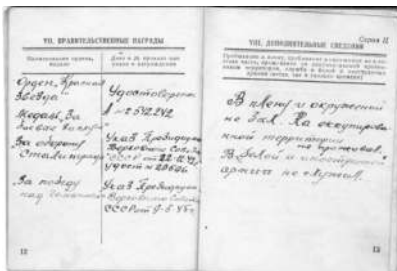 VII. ПРАВИТЕЛЬСТВЕННЫЕ НАГРАДЫ
Наименование ордена, медали
Дата и № приказа или указа о награждении
Орден „Красная Звезда"
Удостоверение
№ 2542242
Медаль „За боевые заслуги"
За оборону Сталинграда
Указ Президиума
Верховного Совета
СССР от 22-12-42
удост №
За победу
над Германией
Указ Президиума
Верховного Совета
СССР от 9-5-45г.
12
Серия
VIII. ДОПОЛНИТЕЛЬНЫЕ СВЕДЕНИЯ
В плену и окружении
не был. На оккупирова-
нной территории
не проживал.
В белой и иностранной
армии не служил.
13